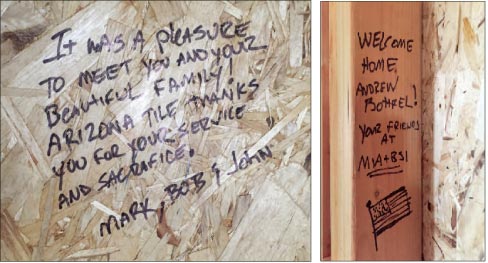 It was a pleasure
to meet you and your
beautiful family!
Arizona Tile thanks
you for your service
and sacrafice.
Mark, Bob & John
Welcome
Home
Andrew
Bottrel!
Your friends
at
MIA+BSI